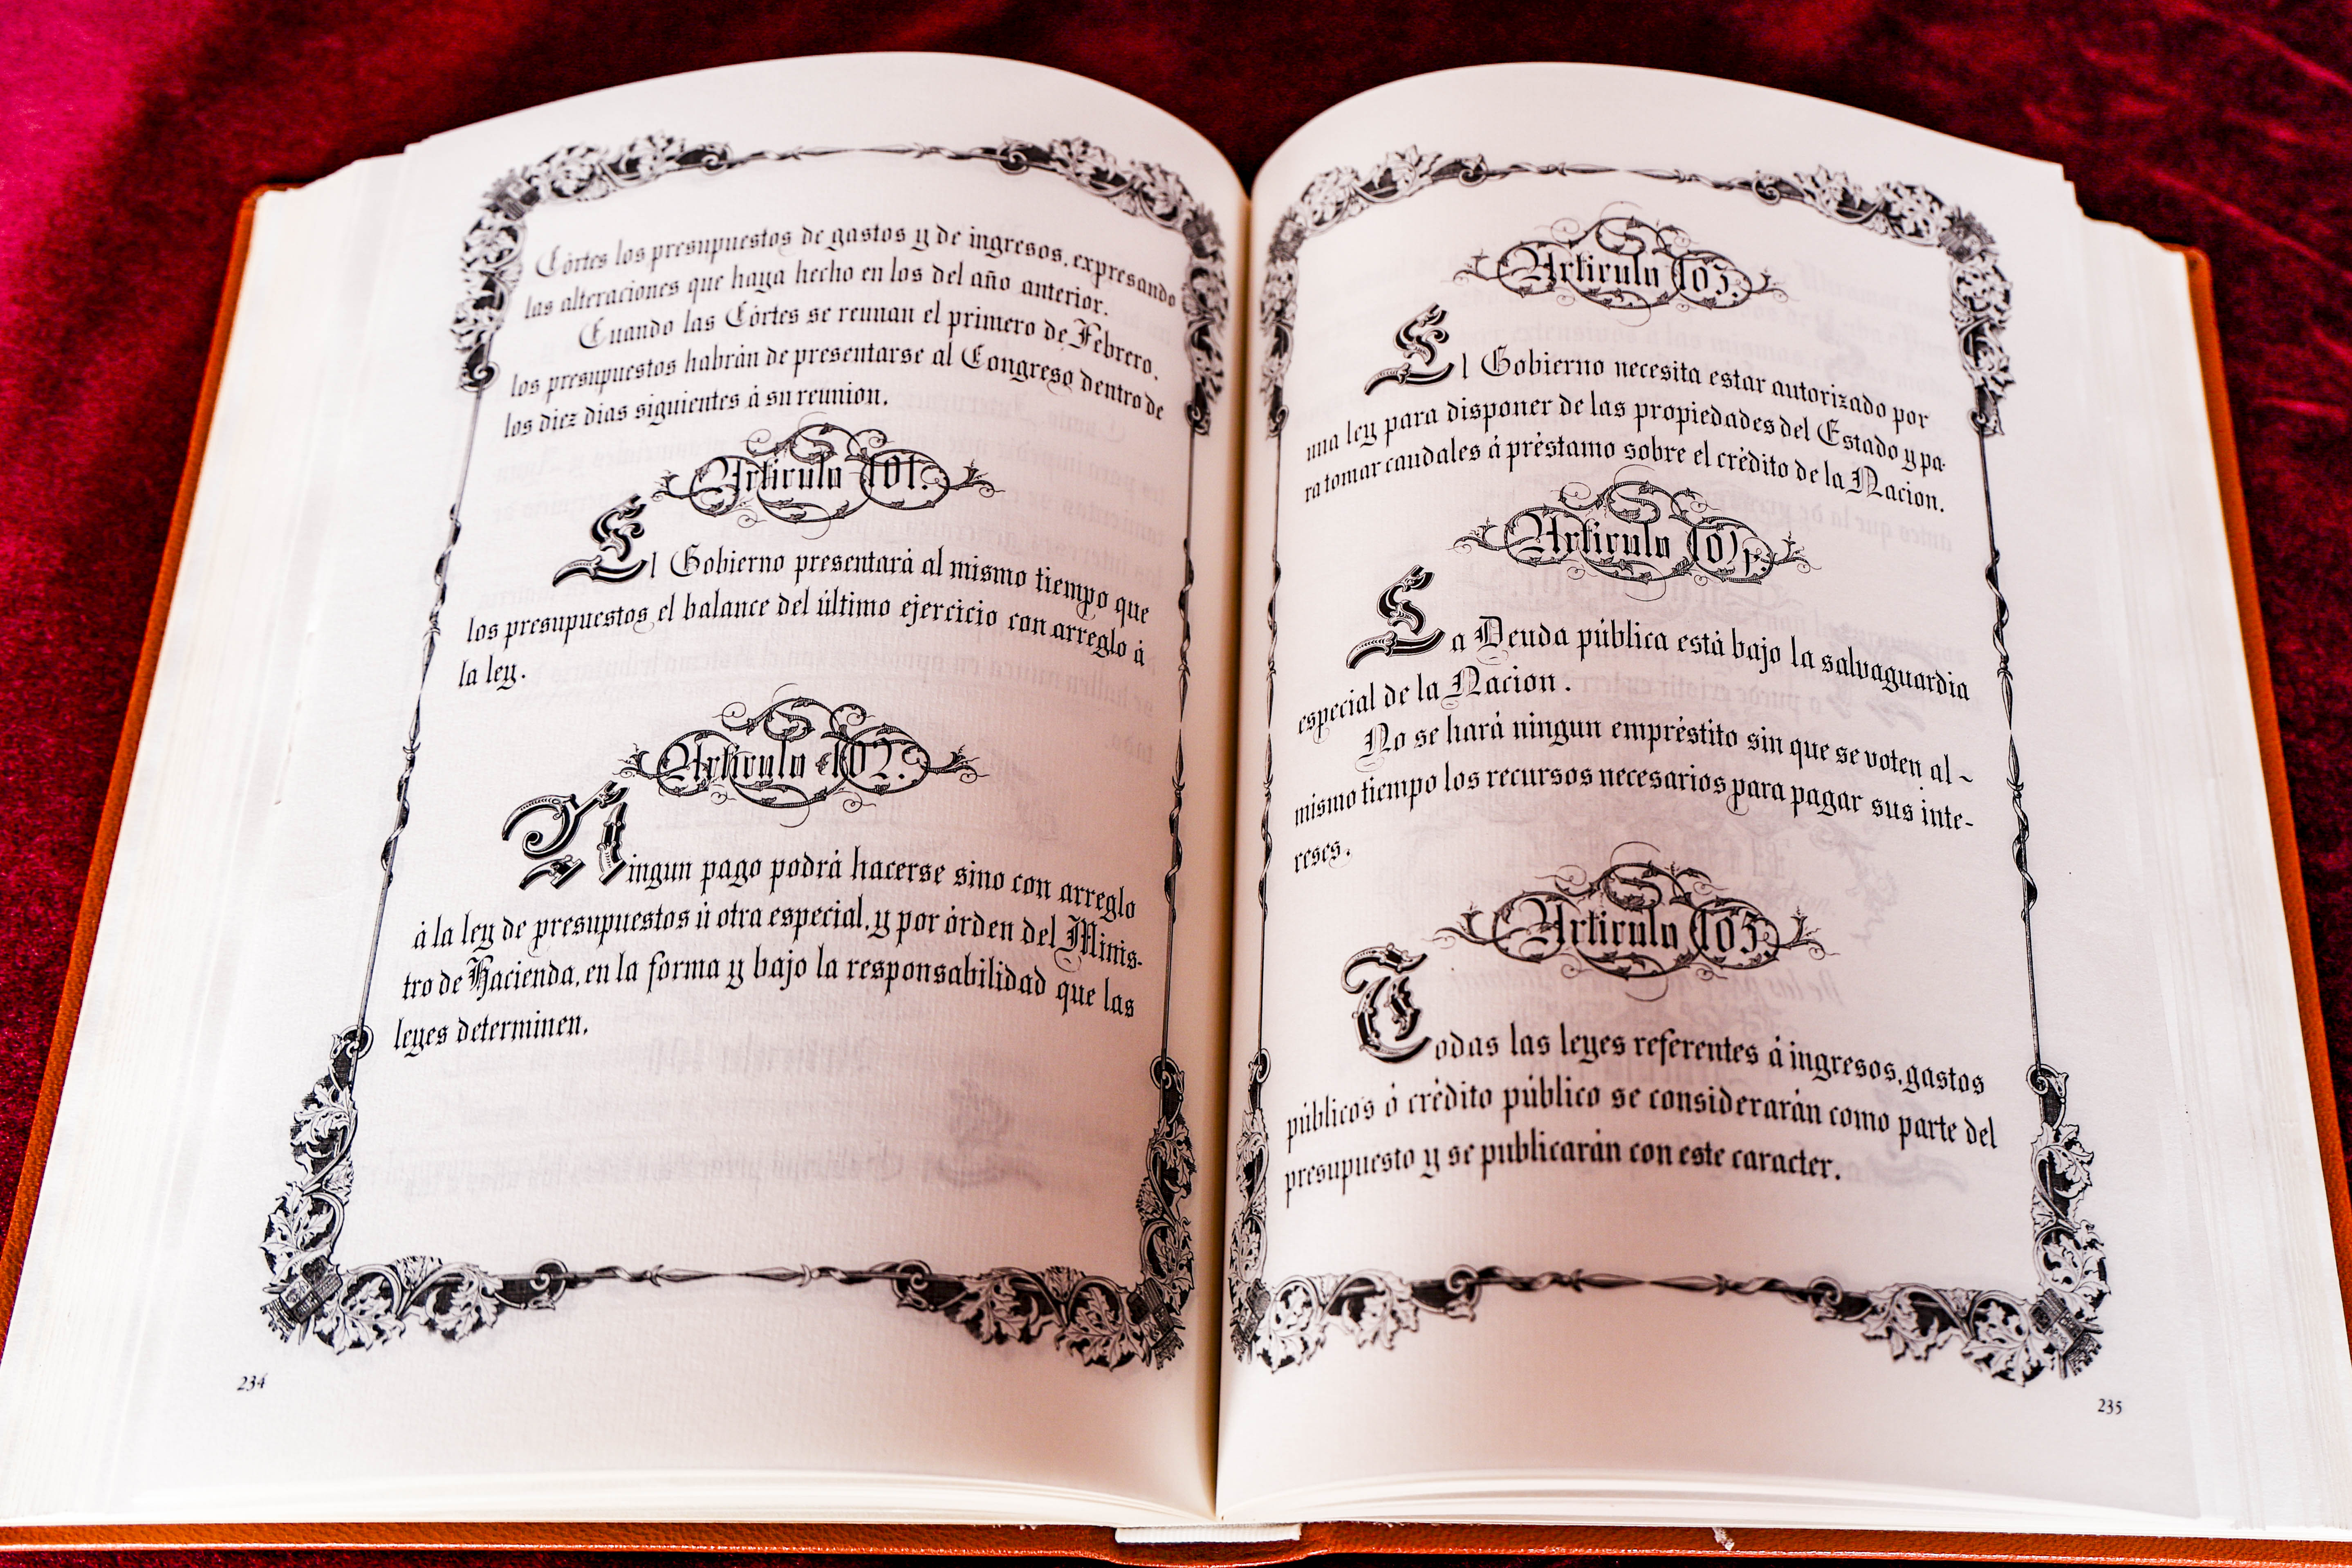 Córtes los presupuestos de gastos y de ingresos, expresando
las alteraciones que haya hecho en los del año anterior.
Cuando las Córtes se reunan el primero de Febrero,
los presupuestos habrán de presentarse al Congreso dentro de
los diez dias siguientes á su reunion.
Artículo 101.
El Gobierno presentará al mismo tiempo que
los presupuestos el balance del último ejercicio con arreglo á
la ley.
Artículo 102.
Ningun pago podrá hacerse sino con arreglo
á la ley de presupuestos ú otra especial, y por órden del Minis-
tro de Hacienda, en la forma y bajo la responsabilidad que las
leyes determinen.
234
Artículo 103.
El Gobierno necesita estar autorizado por
una ley para disponer de las propiedades del Estado y pa-
ra tomar caudales á préstamo sobre el crédito de la Nacion.
Artículo 104.
La Deuda pública está bajo la salvaguardia
especial de la Nacion.
No se hará ningun empréstito sin que se voten al-
mismo tiempo los recursos necesarios para pagar sus inte-
reses.
Artículo 105.
Todas las leyes referentes á ingresos, gastos
públicos ó crédito público se considerarán como parte del
presupuesto y se publicarán con este caracter.
235